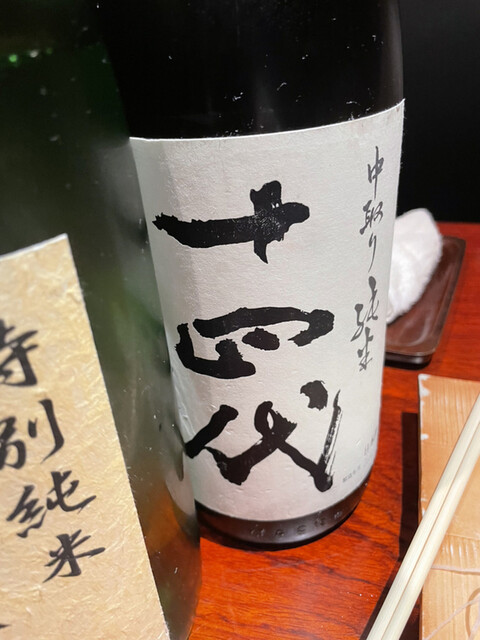 十四代
中取り純米
特別純米